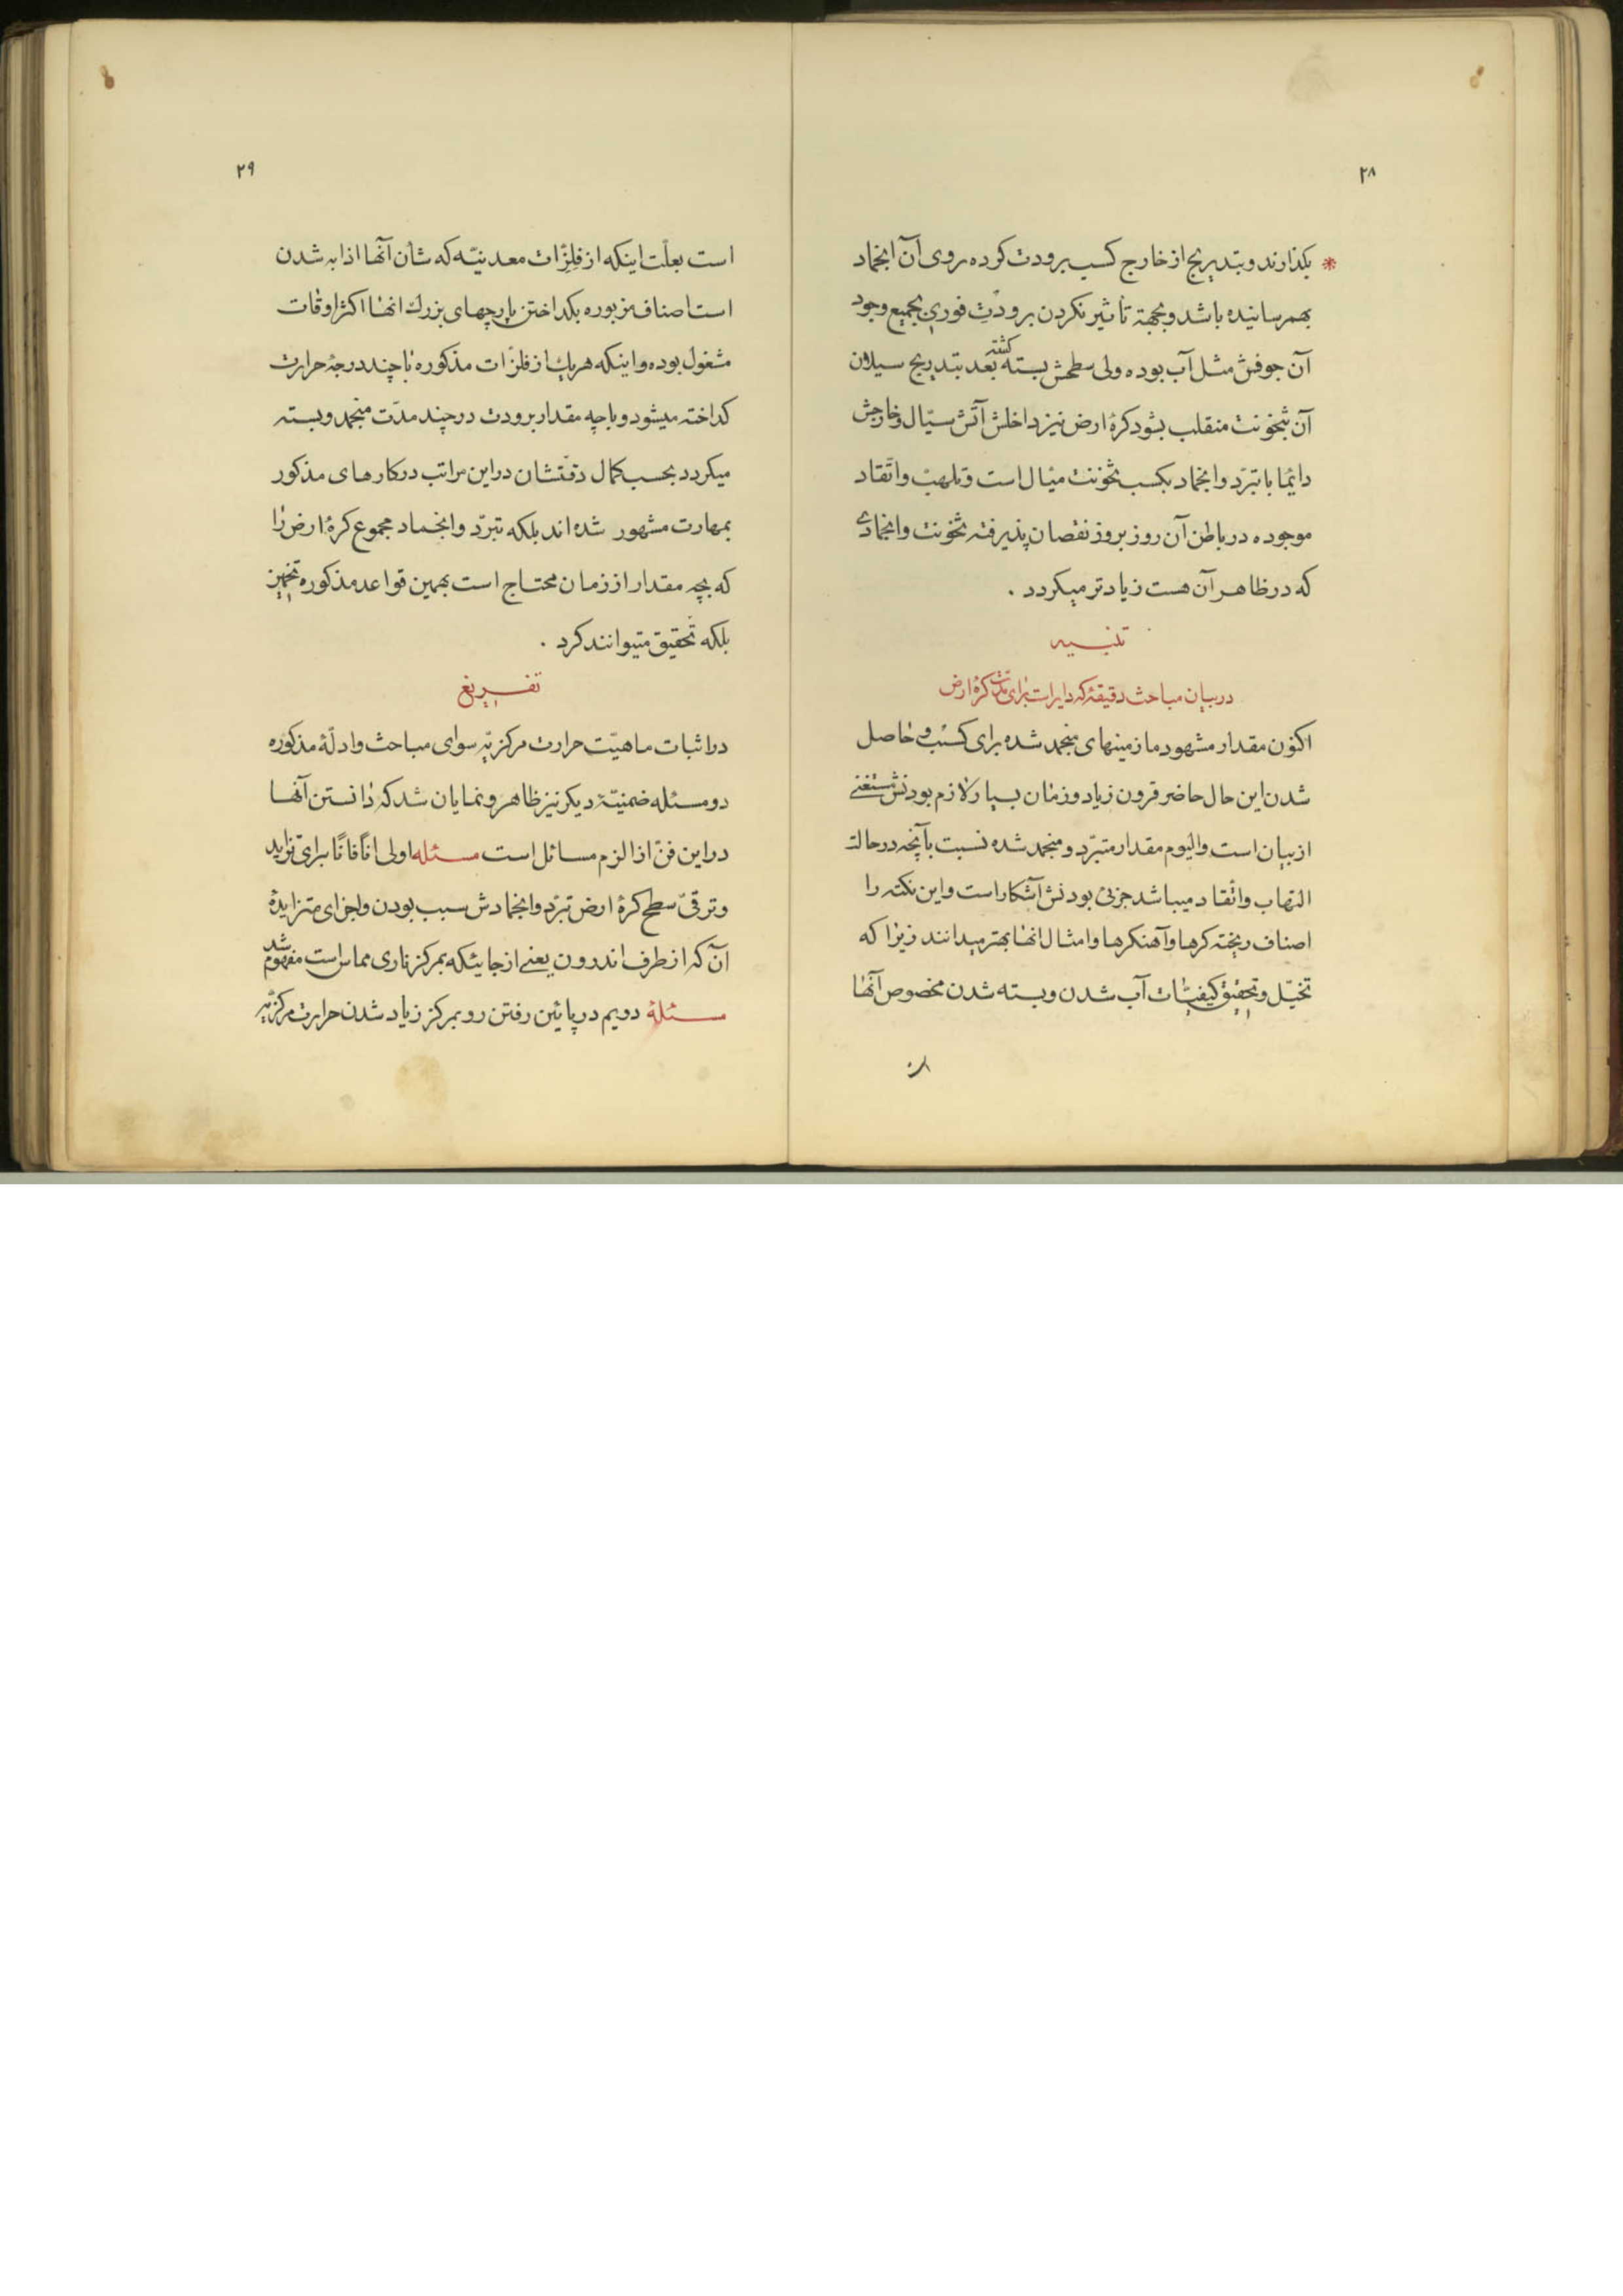 ۲۸
* بکذارند و بتدریج از خارج کسب برودت کرده روی آن انجماد
بهمرسانیده باشد و بجهة تأثیر نکردن برودت فوری بجمیع وجود
آن جوفش مثل آب بوده ولی سطحش بسته کشته بعد بتدریج سیلان
آن بثخونت منقلب بشود کرهٔ ارض نیز داخلش آتش سیّال و خارجش
دایمًا با تبرّد و انجماد بکسب ثخونت میّال است و تلهب و اتّقاد
موجوده در باطن آن روز بروز نقصان پذیرفته ثخونت و انجمادی
که در ظاهر آن هست زیادتر میکردد .
تنبیه
در بیان مباحث دقیقهٔ که دایر است برای مدّت کرهٔ ارض
اکنون مقدار مشهود ما زمینهای منجمد شده برای کسب و حاصل
شدن این حال حاضر قرون زیاد و زمان بسیار لازم بودنش مستغنی
از بیان است و الیوم مقدار متبرّد و منجمد شده نسبت بآنچه در حالت
التهاب و اتّقاد میباشد جزئی بودنش آشکار است و این نکته را
اصناف ریخته کرها و آهنکرها و امثال انها بهتر میدانند زیرا که
تخیّل و تحقیق کیفیّات آب شدن و بسته شدن مخصوص آنها
۲۹
است بعلّت اینکه از فلزّات معدنیّه که شأن آنها اذابه شدن
است اصناف مزبوره بکداختن پارچهای بزرك انها اکثر اوقات
مشغول بوده و اینکه هریك از فلزّات مذکوره با چند درجهٔ حرارت
کداخته میشود و با چه مقدار برودت در چند مدّت منجمد و بسته
میکردد بحسب کمال دقتشان در این مراتب در کارهای مذکور
بمهارت مشهور شده اند بلکه تبرّد و انجماد مجموع کرهٔ ارض را
که بچه مقدار از زمان محتاج است بهمین قواعد مذکوره تخمین
بلکه تحقیق میتوانند کرد .
تفریغ
در اثبات ماهیّت حرارت مرکزیّه سوای مباحث و ادلّهٔ مذکوره
دو مسئله ضمنیّهٔ دیکر نیز ظاهر و نمایان شد که دانستن آنها
در این فنّ از الزم مسائل است مسئله اولی انًا فانًا برای تزاید
و ترقیّ سطح کرهٔ ارض تبرّد و انجمادش سبب بودن و اجزای متزایدهٔ
آن که از طرف اندرون یعنی از جائیکه بمرکز ناری مماس است مفهوم شد
مسئلهٔ دویم در پائین رفتن رو بمرکز زیاد شدن حرارت مرکزیّه